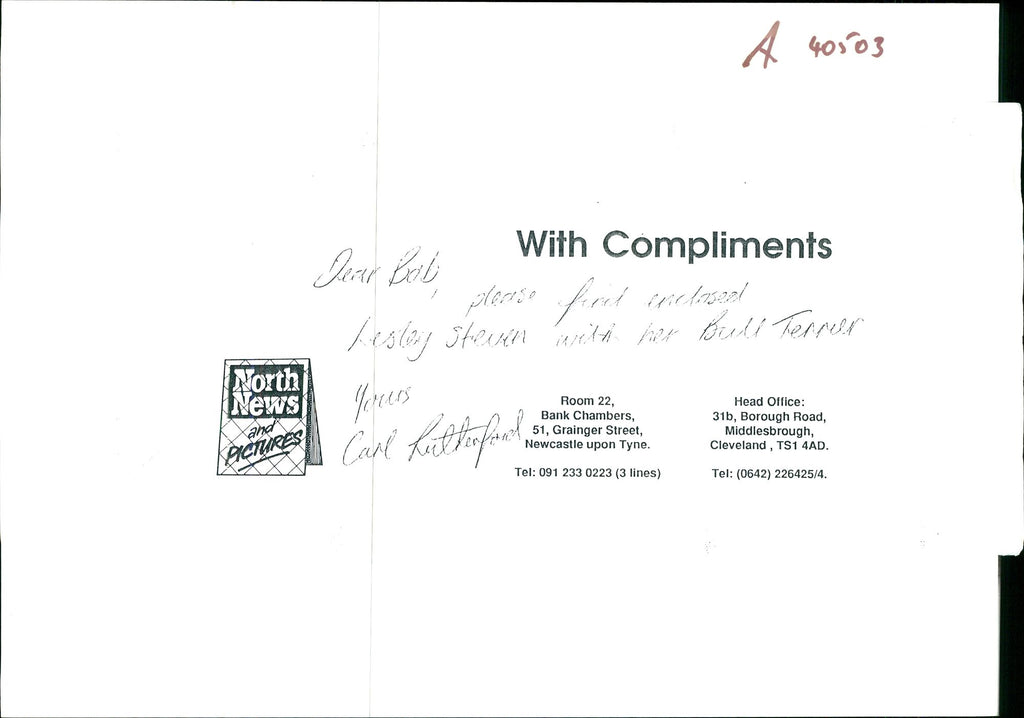 A 40503
With Compliments
Dear Bob,
please find enclosed
Lesley Steven with her Bull Terrier
Yours
Carl Rutherford
North
News
and
PICTURES
Room 22,
Bank Chambers,
51, Grainger Street,
Newcastle upon Tyne.
Tel: 091 233 0223 (3 lines)
Head Office:
31b, Borough Road,
Middlesbrough,
Cleveland , TS1 4AD.
Tel: (0642) 226425/4.